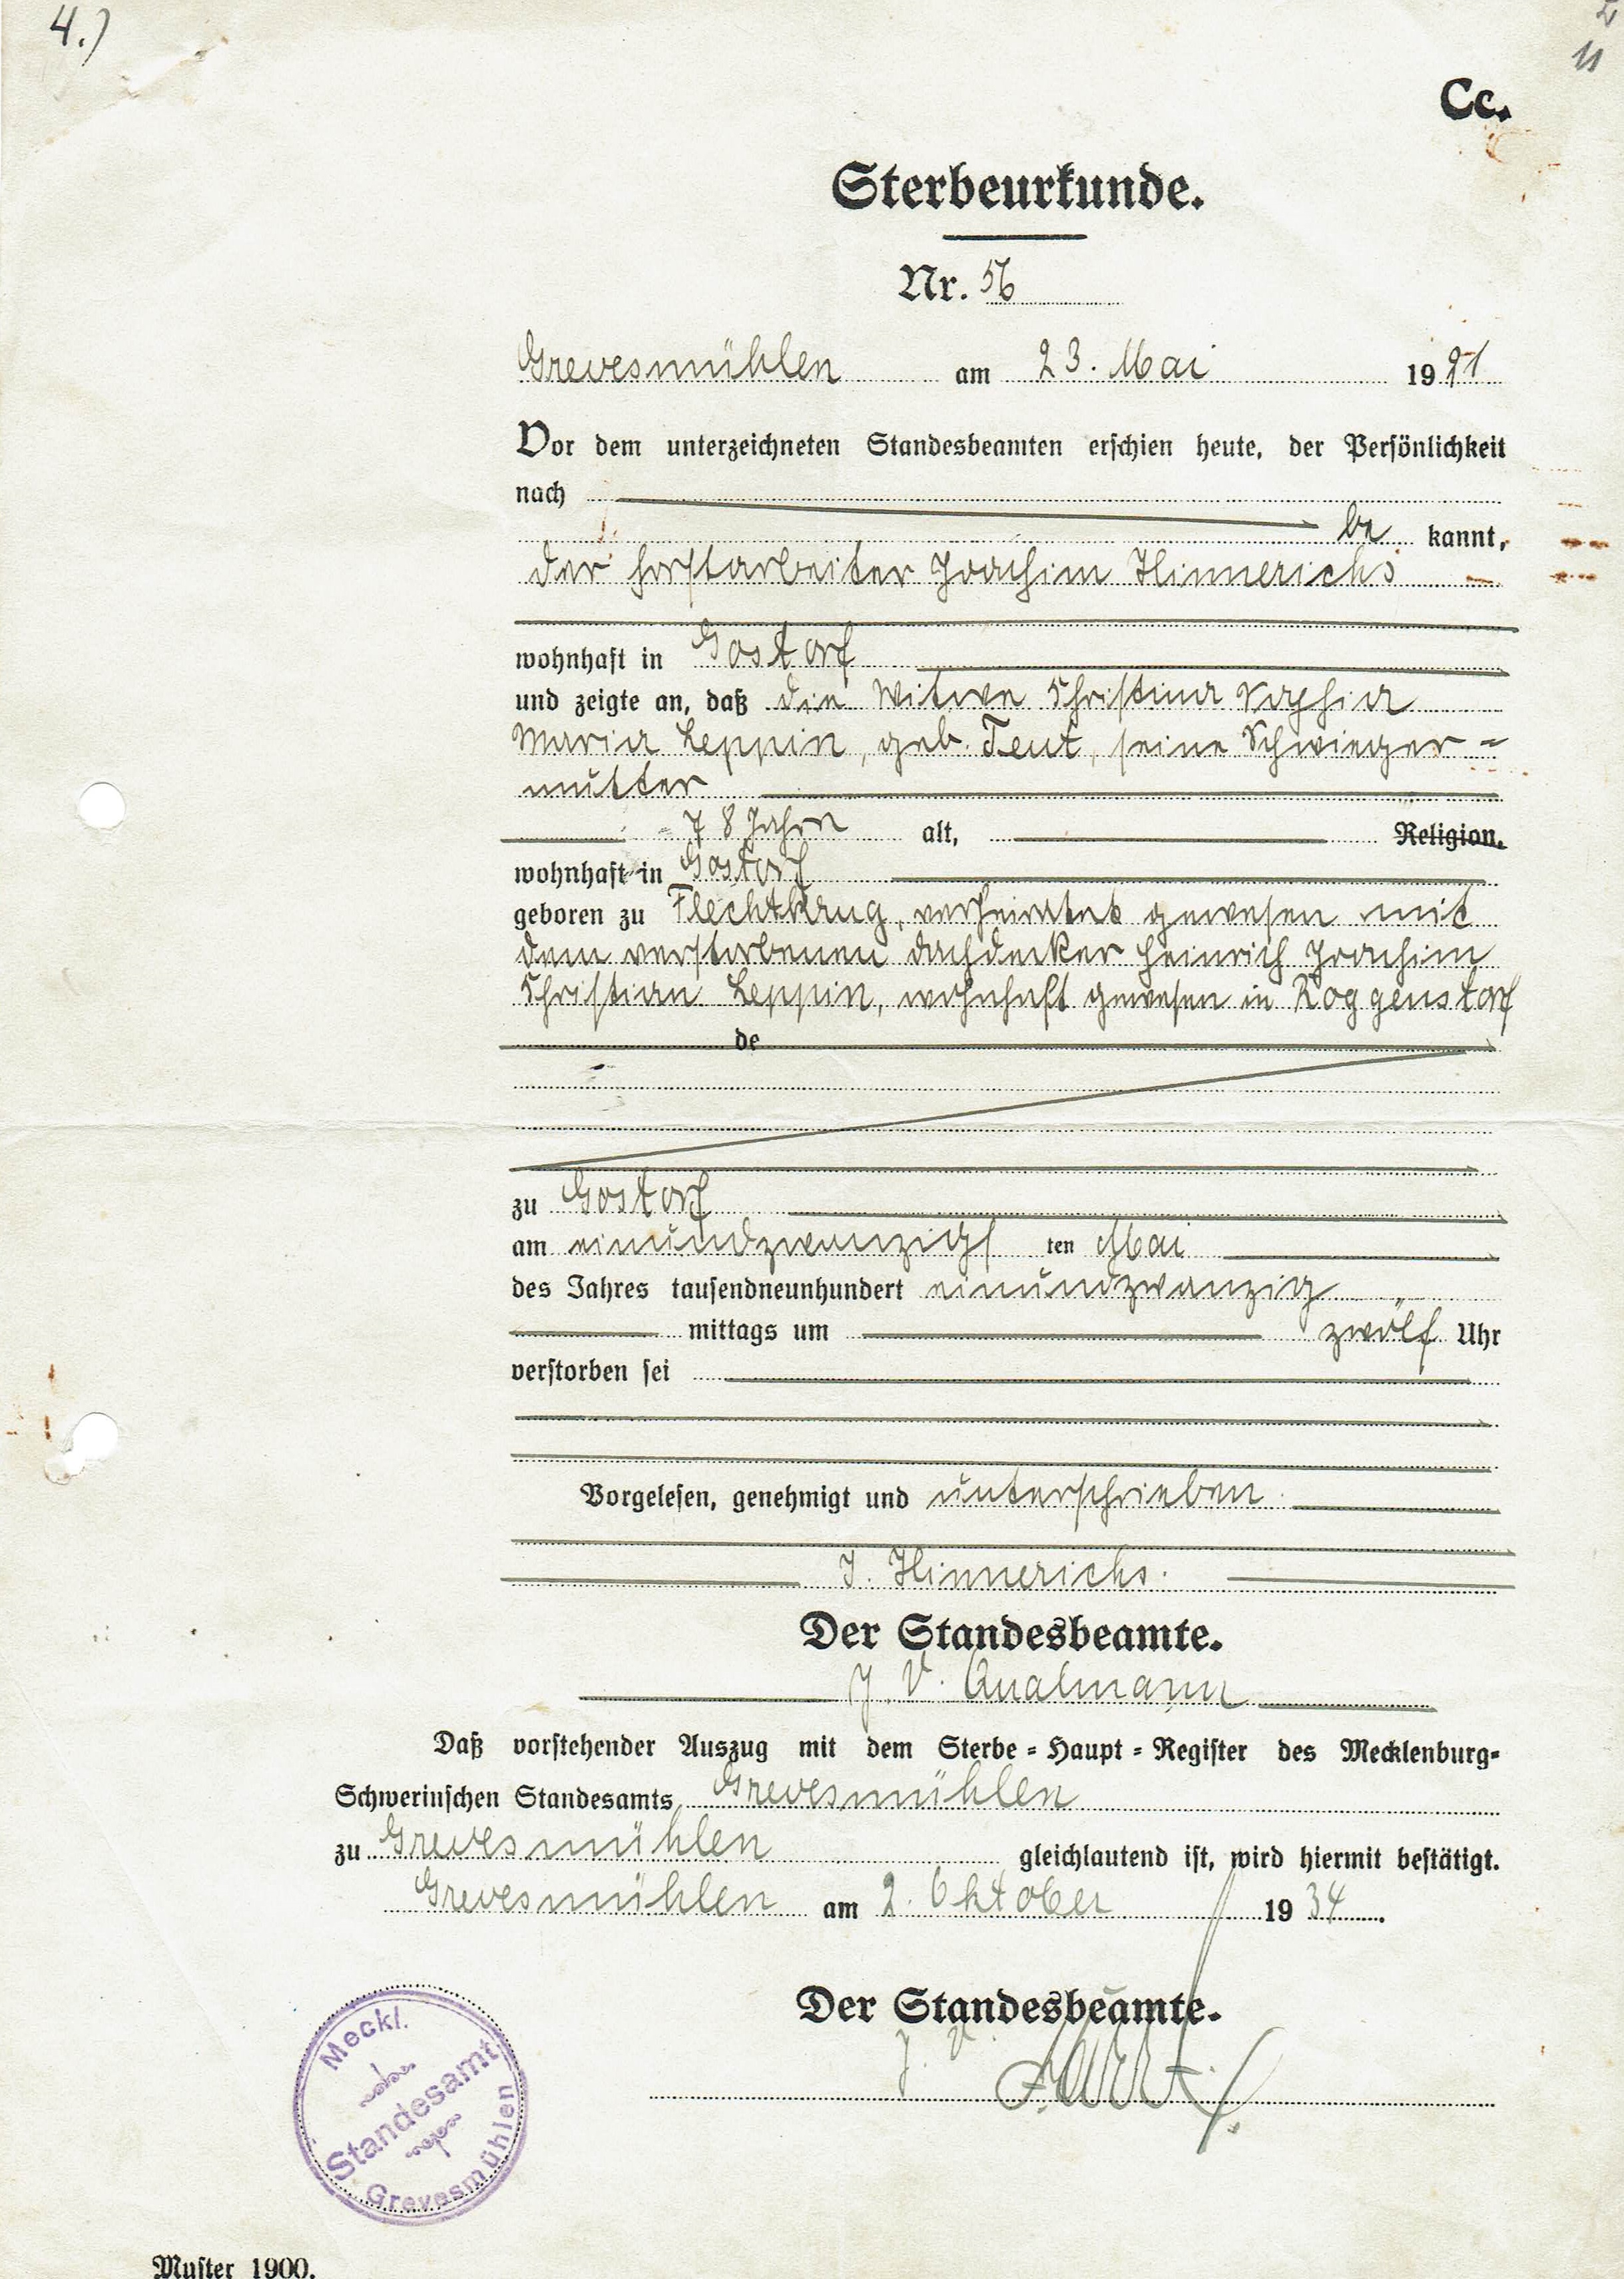 4.)
Cc.
Sterbeurkunde.
Nr. 56
Grevesmühlen am 23. Mai 1921
Vor dem unterzeichneten Standesbeamten erschien heute, der Persönlichkeit
nach
be kannt,
der Forstarbeiter Joachim Hinnerichs
wohnhaft in Gostorf
und zeigte an, daß die Witwe Christina Sophia
Maria Leppin, geb. Teut, seine Schwieger=
mutter
78 Jahre alt, Religion,
wohnhaft in Gostorf
geboren zu Flechtkrug, verheiratet gewesen mit
dem verstorbenen Dachdecker Heinrich Joachim
Christian Leppin, wohnhaft gewesen in Roggenstorf
de
zu Gostorf
am einundzwanzigsten Mai
des Jahres tausendneunhundert einundzwanzig
mittags um zwölf Uhr
verstorben sei
Vorgelesen, genehmigt und unterschrieben.
J. Hinnerichs.
Der Standesbeamte.
J. V. Qualmann
Daß vorstehender Auszug mit dem Sterbe=Haupt=Register des Mecklenburg=
Schwerinschen Standesamts Grevesmühlen
zu Grevesmühlen gleichlautend ist, wird hiermit bestätigt.
Grevesmühlen am 2. Oktober 1934.
Der Standesbeamte.
J. V.
Meckl.
Standesamt
Grevesmühlen
Muster 1900.